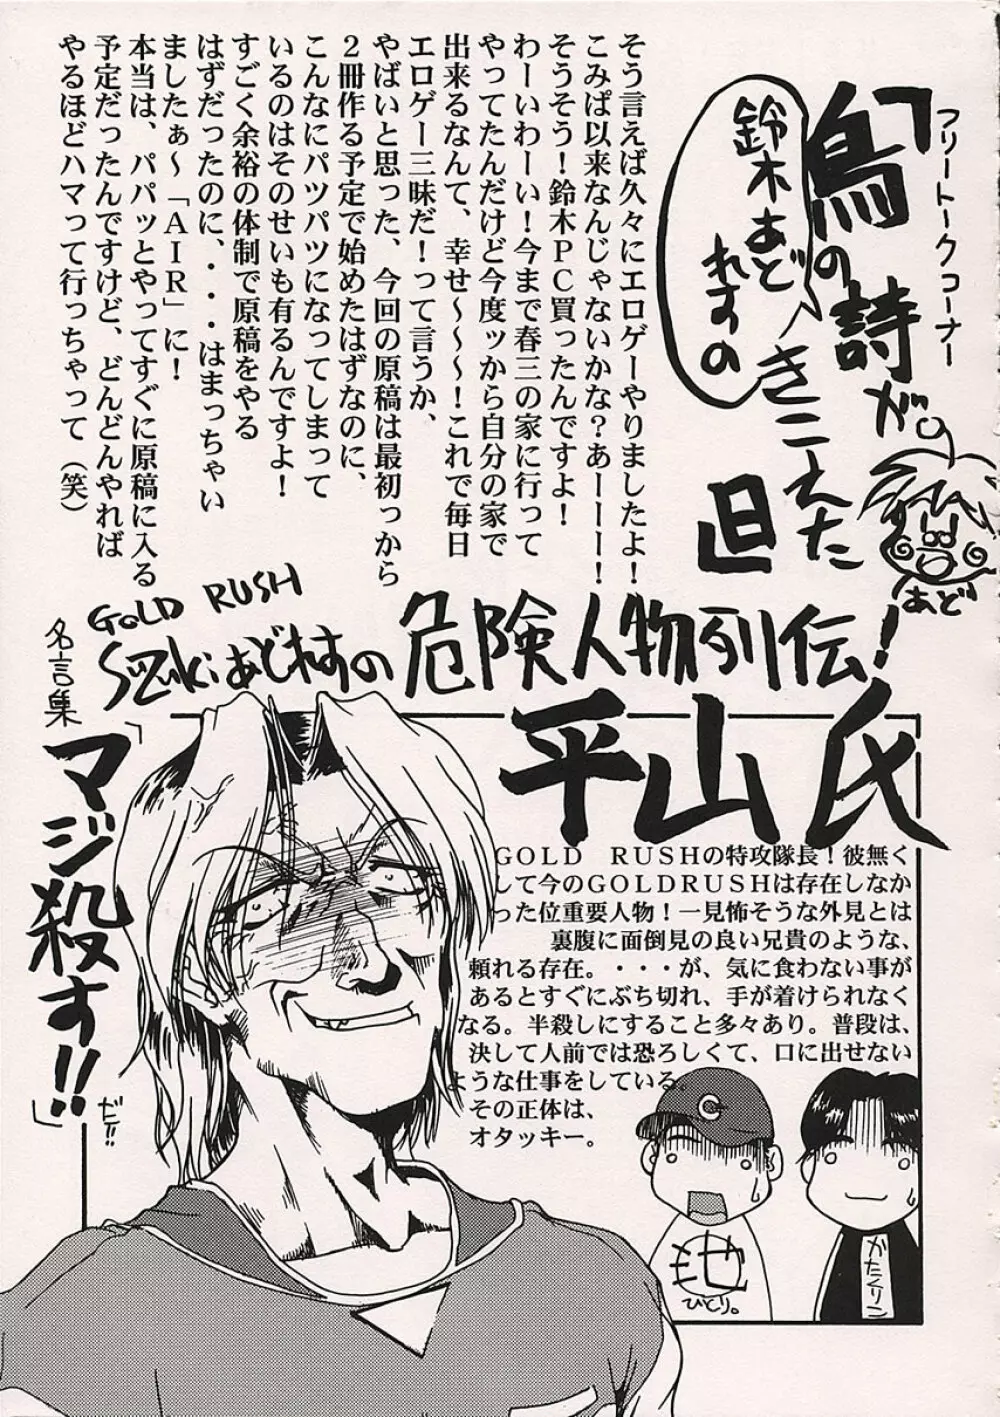 フリートークコーナー
「鳥の詩がきこえた」
鈴木あど
れすの
の
迫
あど
そう言えば久々にエロゲーやりましたよ！
こみぱ以来なんじゃないかな？あーーーー！
そうそう！鈴木ＰＣ買ったんですよ！
わーいわーい！今まで春三の家に行って
やってたんだけど今度ッから自分の家で
出来るなんて、幸せ～～～！これで毎日
エロゲー三昧だ！って言うか、
やばいと思った、今回の原稿は最初っから
２冊作る予定で始めたはずなのに、
こんなにパツパツになってしまって
いるのはそのせいも有るんですよ！
すごく余裕の体制で原稿をやる
はずだったのに、・・・はまっちゃい
ましたぁ～「ＡＩＲ」に！
本当は、パパッとやってすぐに原稿に入る
予定だったんですけど、どんどんやれば
やるほどハマって行っちゃって（笑）
GOLD RUSH
Suzukiあどれすの危険人物列伝！
平山氏
名言集
「マジ殺す!!」
だ!!
ＧＯＬＤ　ＲＵＳＨの特攻隊長！彼無く
して今のＧＯＬＤＲＵＳＨは存在しなか
った位重要人物！一見怖そうな外見とは
裏腹に面倒見の良い兄貴のような、
頼れる存在。・・・が、気に食わない事が
あるとすぐにぶち切れ、手が着けられなく
なる。半殺しにすること多々あり。普段は、
決して人前では恐ろしくて、口に出せない
ような仕事をしている。
その正体は、
オタッキー。
C
池
ひとり。
かたくりこ